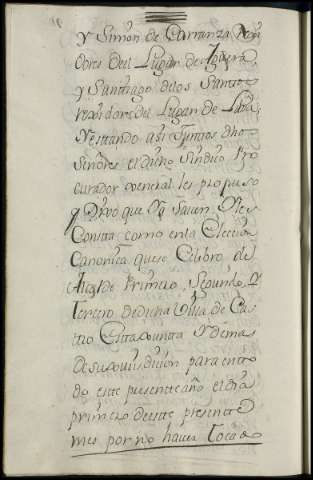 y Simon de Carranza Regi
dores del Lugar de Aguera
y Santiago delos Santos
rexidor del Lugar de
Y estando asi Juntos dhos
Señores el dicho Sindico Pro
curador General les propuso
y Dixo que Ya saven y les
Consta como enla Eleccion
Canonica quese Celebro de
Alcalde Primero, Segundo, Y
Tercero dedicha Villa de Cas
tro Esta Junta Y demas
desu Jurisdicion para en to
do este presente año el dia
primero deeste presente
mes por no haver Tocado